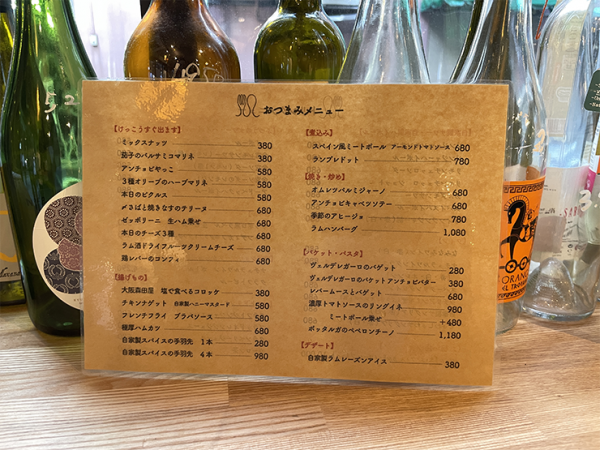 おつまみメニュー
【けっこうすぐ出ます】
ミックスナッツ 380
茄子のバルサミコマリネ 380
アンチョビやっこ 580
3種オリーブのハーブマリネ 580
本日のピクルス 580
〆さばと焼きなすのテリーヌ 680
ゼッポリーニ 生ハム乗せ 680
本日のチーズ3種 680
ラム酒ドライフルーツクリームチーズ 680
鶏レバーのコンフィ 680
【揚げもの】
大阪森田屋 塩で食べるコロッケ 380
チキンナゲット 自家製ハニーマスタード 580
フレンチフライ ブラバソース 580
極厚ハムカツ 680
自家製スパイスの手羽先 1本 280
自家製スパイスの手羽先 4本 980
【煮込み】
スペイン風ミートボール アーモンドトマトソース 680
ランプレドット 780
【焼き・炒め】
オムレツパルミジャーノ 680
アンチョビキャベツソテー 680
季節のアヒージョ 780
ラムハンバーグ 1,080
【バケット・パスタ】
ヴェルデレガーロのバゲット 280
ヴェルデレガーロのバゲットアンチョビバター 380
レバームースとバゲット 680
濃厚トマトソースのリングイネ 980
ミートボール乗せ +480
ボッタルガのペペロンチーノ 1,180
【デザート】
自家製ラムレーズンアイス 380